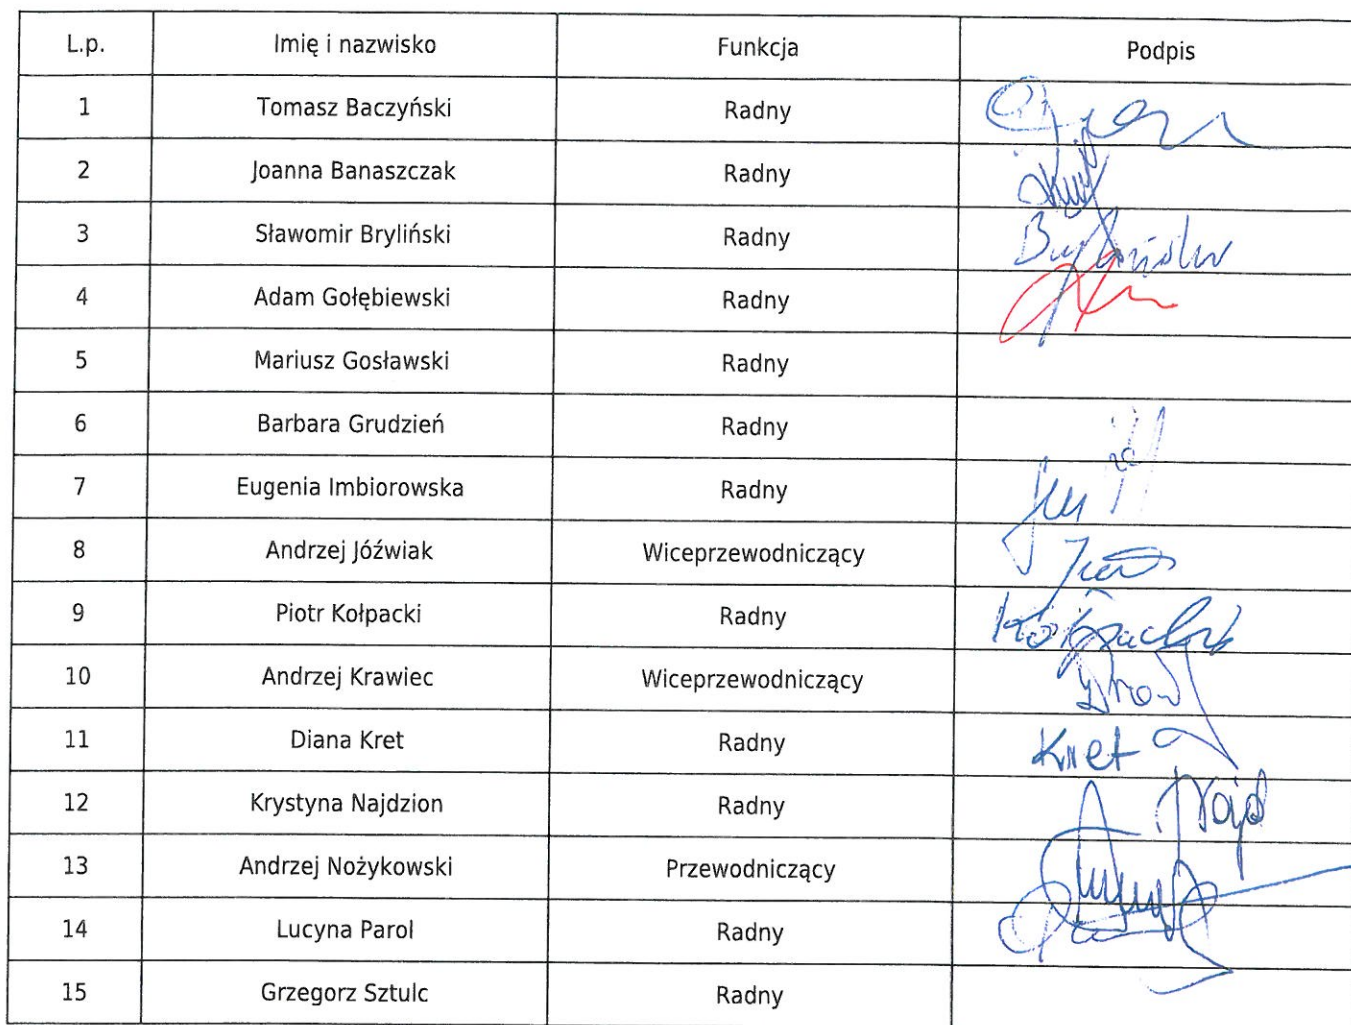 L.p. Imię i nazwisko Funkcja Podpis
1 Tomasz Baczyński Radny
2 Joanna Banaszczak Radny
3 Sławomir Bryliński Radny
4 Adam Gołębiewski Radny
5 Mariusz Gosławski Radny
6 Barbara Grudzień Radny
7 Eugenia Imbiorowska Radny
8 Andrzej Jóźwiak Wiceprzewodniczący
9 Piotr Kołpacki Radny
10 Andrzej Krawiec Wiceprzewodniczący
11 Diana Kret Radny Kret
12 Krystyna Najdzion Radny
13 Andrzej Nożykowski Przewodniczący
14 Lucyna Parol Radny
15 Grzegorz Sztulc Radny